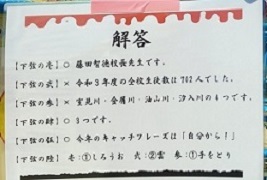 解答
【下弦の壱】○ 藤田智徳校長先生です。
【下弦の弐】× 令和3年度の全校生徒数は762人でした。
【下弦の参】× 室見川・金屑川・油山川・汐入川の4つです。
【下弦の肆】○ 3つです。
【下弦の伍】○ 今年のキャッチフレーズは「自分から!」
【下弦の陸】壱:③しろうお 弐:②雲 参:①手をとり